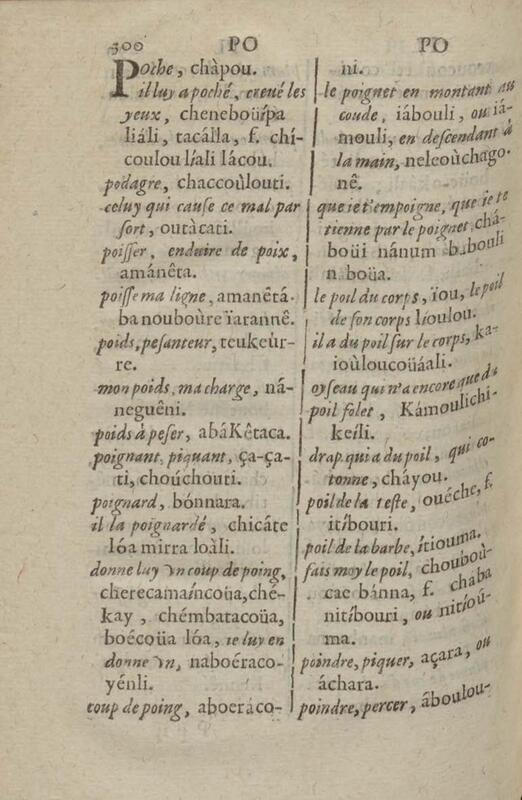 300 PO PO
Poche, chàpou.
il luy a poché, creué les
yeux, cheneboüípa
liáli, tacálla, f. chí-
coulou líali lácou.
podagre, chaccoùlouti.
celuy qui cause ce mal par
sort, outàcati.
poisser, enduire de poix,
amánêta.
poisse ma ligne, amanêtá-
ba nouboùre ïarannê.
poids, pesanteur, teukeùr-
re.
mon poids, ma charge, ná-
neguêni.
poids à peser, abáKêtaca.
poignant, piquant, ça-ça-
ti, choúchouti.
poignard, bónnara.
il la poignardé, chicáte
lóa mirra loàli.
donne luy vn coup de poing,
cherecamaíncoüa, ché-
kay, chémbatacoüa,
boécoüa lóa, ie luy en
donne vn, naboéraco-
yénli.
coup de poing, aboeráco-
ni.
le poignet en montant au
coude, iábouli, ou iá-
mouli, en descendant à
la main, neleoùchago-
nê.
que ie t'empoigne, que ie te
tienne par le poignet, chá-
boüi nánum b.bouli
n boüa.
le poil du corps, ïou, le poil
de son corps líoulou.
il a du poil sur le corps, ka-
ioùloucoüáali.
oyseau qui n'a encore que du
poil folet, Kámoulichi-
keíli.
drap qui a du poil, qui co-
tonne, cháyou.
poil de la teste, ouéche, f.
itíbouri.
poil de la barbe, ítiouma.
fais moy le poil, chouboù-
cae bánna, f. chaba
nitíbouri, ou nitíoú-
ma.
poindre, piquer, açara, ou
áchara.
poindre, percer, âboulou-